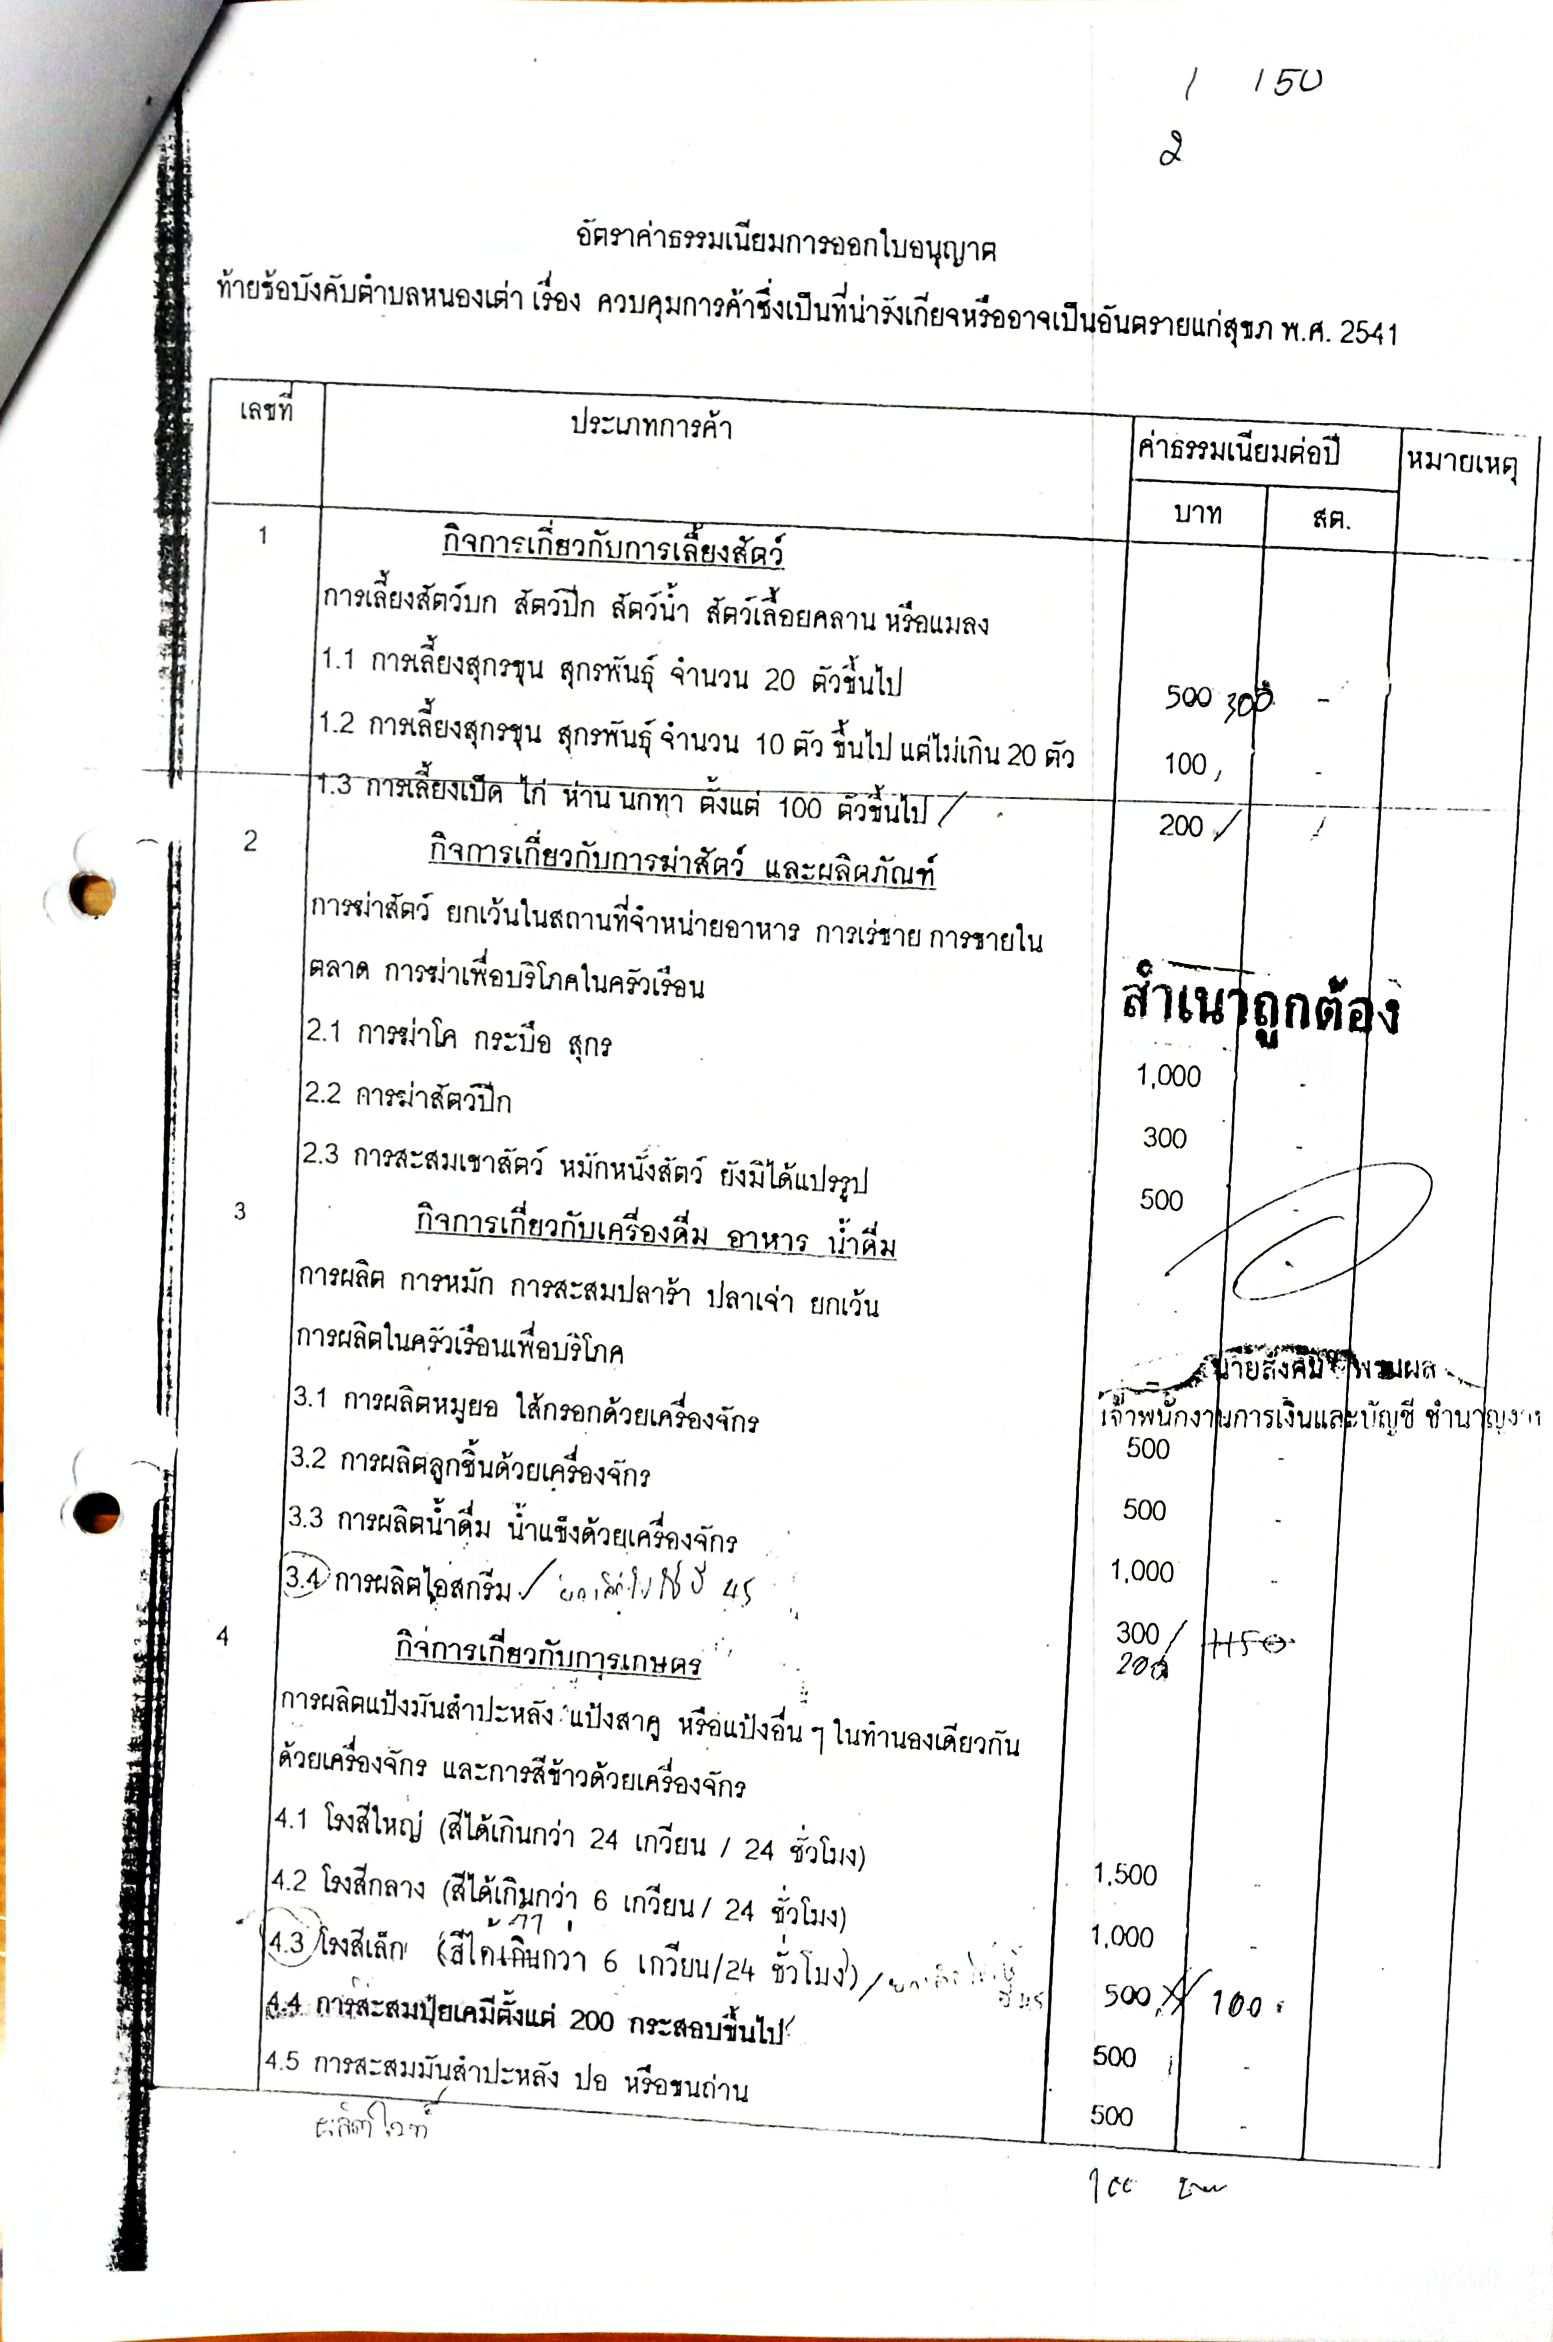 1 150
2
อัตราค่าธรรมเนียมการออกใบอนุญาต
ท้ายข้อบังคับตำบลหนองเต่า เรื่อง ควบคุมการค้าซึ่งเป็นที่น่ารังเกียจหรืออาจเป็นอันตรายแก่สุขภ พ.ศ. 2541
เลขที่ ประเภทการค้า ค่าธรรมเนียมต่อปี หมายเหตุ
บาท สต.
1 กิจการเกี่ยวกับการเลี้ยงสัตว์
การเลี้ยงสัตว์บก สัตว์ปีก สัตว์น้ำ สัตว์เลื้อยคลาน หรือแมลง
1.1 การเลี้ยงสุกรขุน สุกรพันธุ์ จำนวน 20 ตัวขึ้นไป 500 300 -
1.2 การเลี้ยงสุกรขุน สุกรพันธุ์ จำนวน 10 ตัว ขึ้นไป แต่ไม่เกิน 20 ตัว 100 -
1.3 การเลี้ยงเป็ด ไก่ ห่าน นกทา ตั้งแต่ 100 ตัวขึ้นไป / 200 /
2 กิจการเกี่ยวกับการฆ่าสัตว์ และผลิตภัณฑ์
การฆ่าสัตว์ ยกเว้นในสถานที่จำหน่ายอาหาร การเร่ขาย การขายใน
ตลาด การฆ่าเพื่อบริโภคในครัวเรือน
สำเนาถูกต้อง
2.1 การฆ่าโค กระบือ สุกร 1,000 -
2.2 การฆ่าสัตว์ปีก 300 -
2.3 การสะสมเขาสัตว์ หมักหนังสัตว์ ยังมิได้แปรรูป 500 -
3 กิจการเกี่ยวกับเครื่องดื่ม อาหาร น้ำดื่ม
การผลิต การหมัก การสะสมปลาร้า ปลาเจ่า ยกเว้น
การผลิตในครัวเรือนเพื่อบริโภค
เจ้าพนักงานการเงินและบัญชี ชำนาญงาน
3.1 การผลิตหมูยอ ไส้กรอกด้วยเครื่องจักร 500 -
3.2 การผลิตลูกชิ้นด้วยเครื่องจักร 500 -
3.3 การผลิตน้ำดื่ม น้ำแข็งด้วยเครื่องจักร 1,000 -
3.4 การผลิตไอสกรีม / 300 /
200
4 กิจการเกี่ยวกับการเกษตร
การผลิตแป้งมันสำปะหลัง แป้งสาคู หรือแป้งอื่น ๆ ในทำนองเดียวกัน
ด้วยเครื่องจักร และการสีข้าวด้วยเครื่องจักร
4.1 โรงสีใหญ่ (สีได้เกินกว่า 24 เกวียน / 24 ชั่วโมง) 1,500 -
4.2 โรงสีกลาง (สีได้เกินกว่า 6 เกวียน / 24 ชั่วโมง) 1,000 -
4.3 โรงสีเล็ก (สีได้เกินกว่า 6 เกวียน/24 ชั่วโมง) / 500 100
4.4 การสะสมปุ๋ยเคมีตั้งแต่ 200 กระสอบขึ้นไป 500 -
4.5 การสะสมมันสำปะหลัง ปอ หรือขนถ่าน 500 -